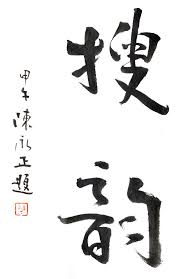 搜韵
甲午陳永正題